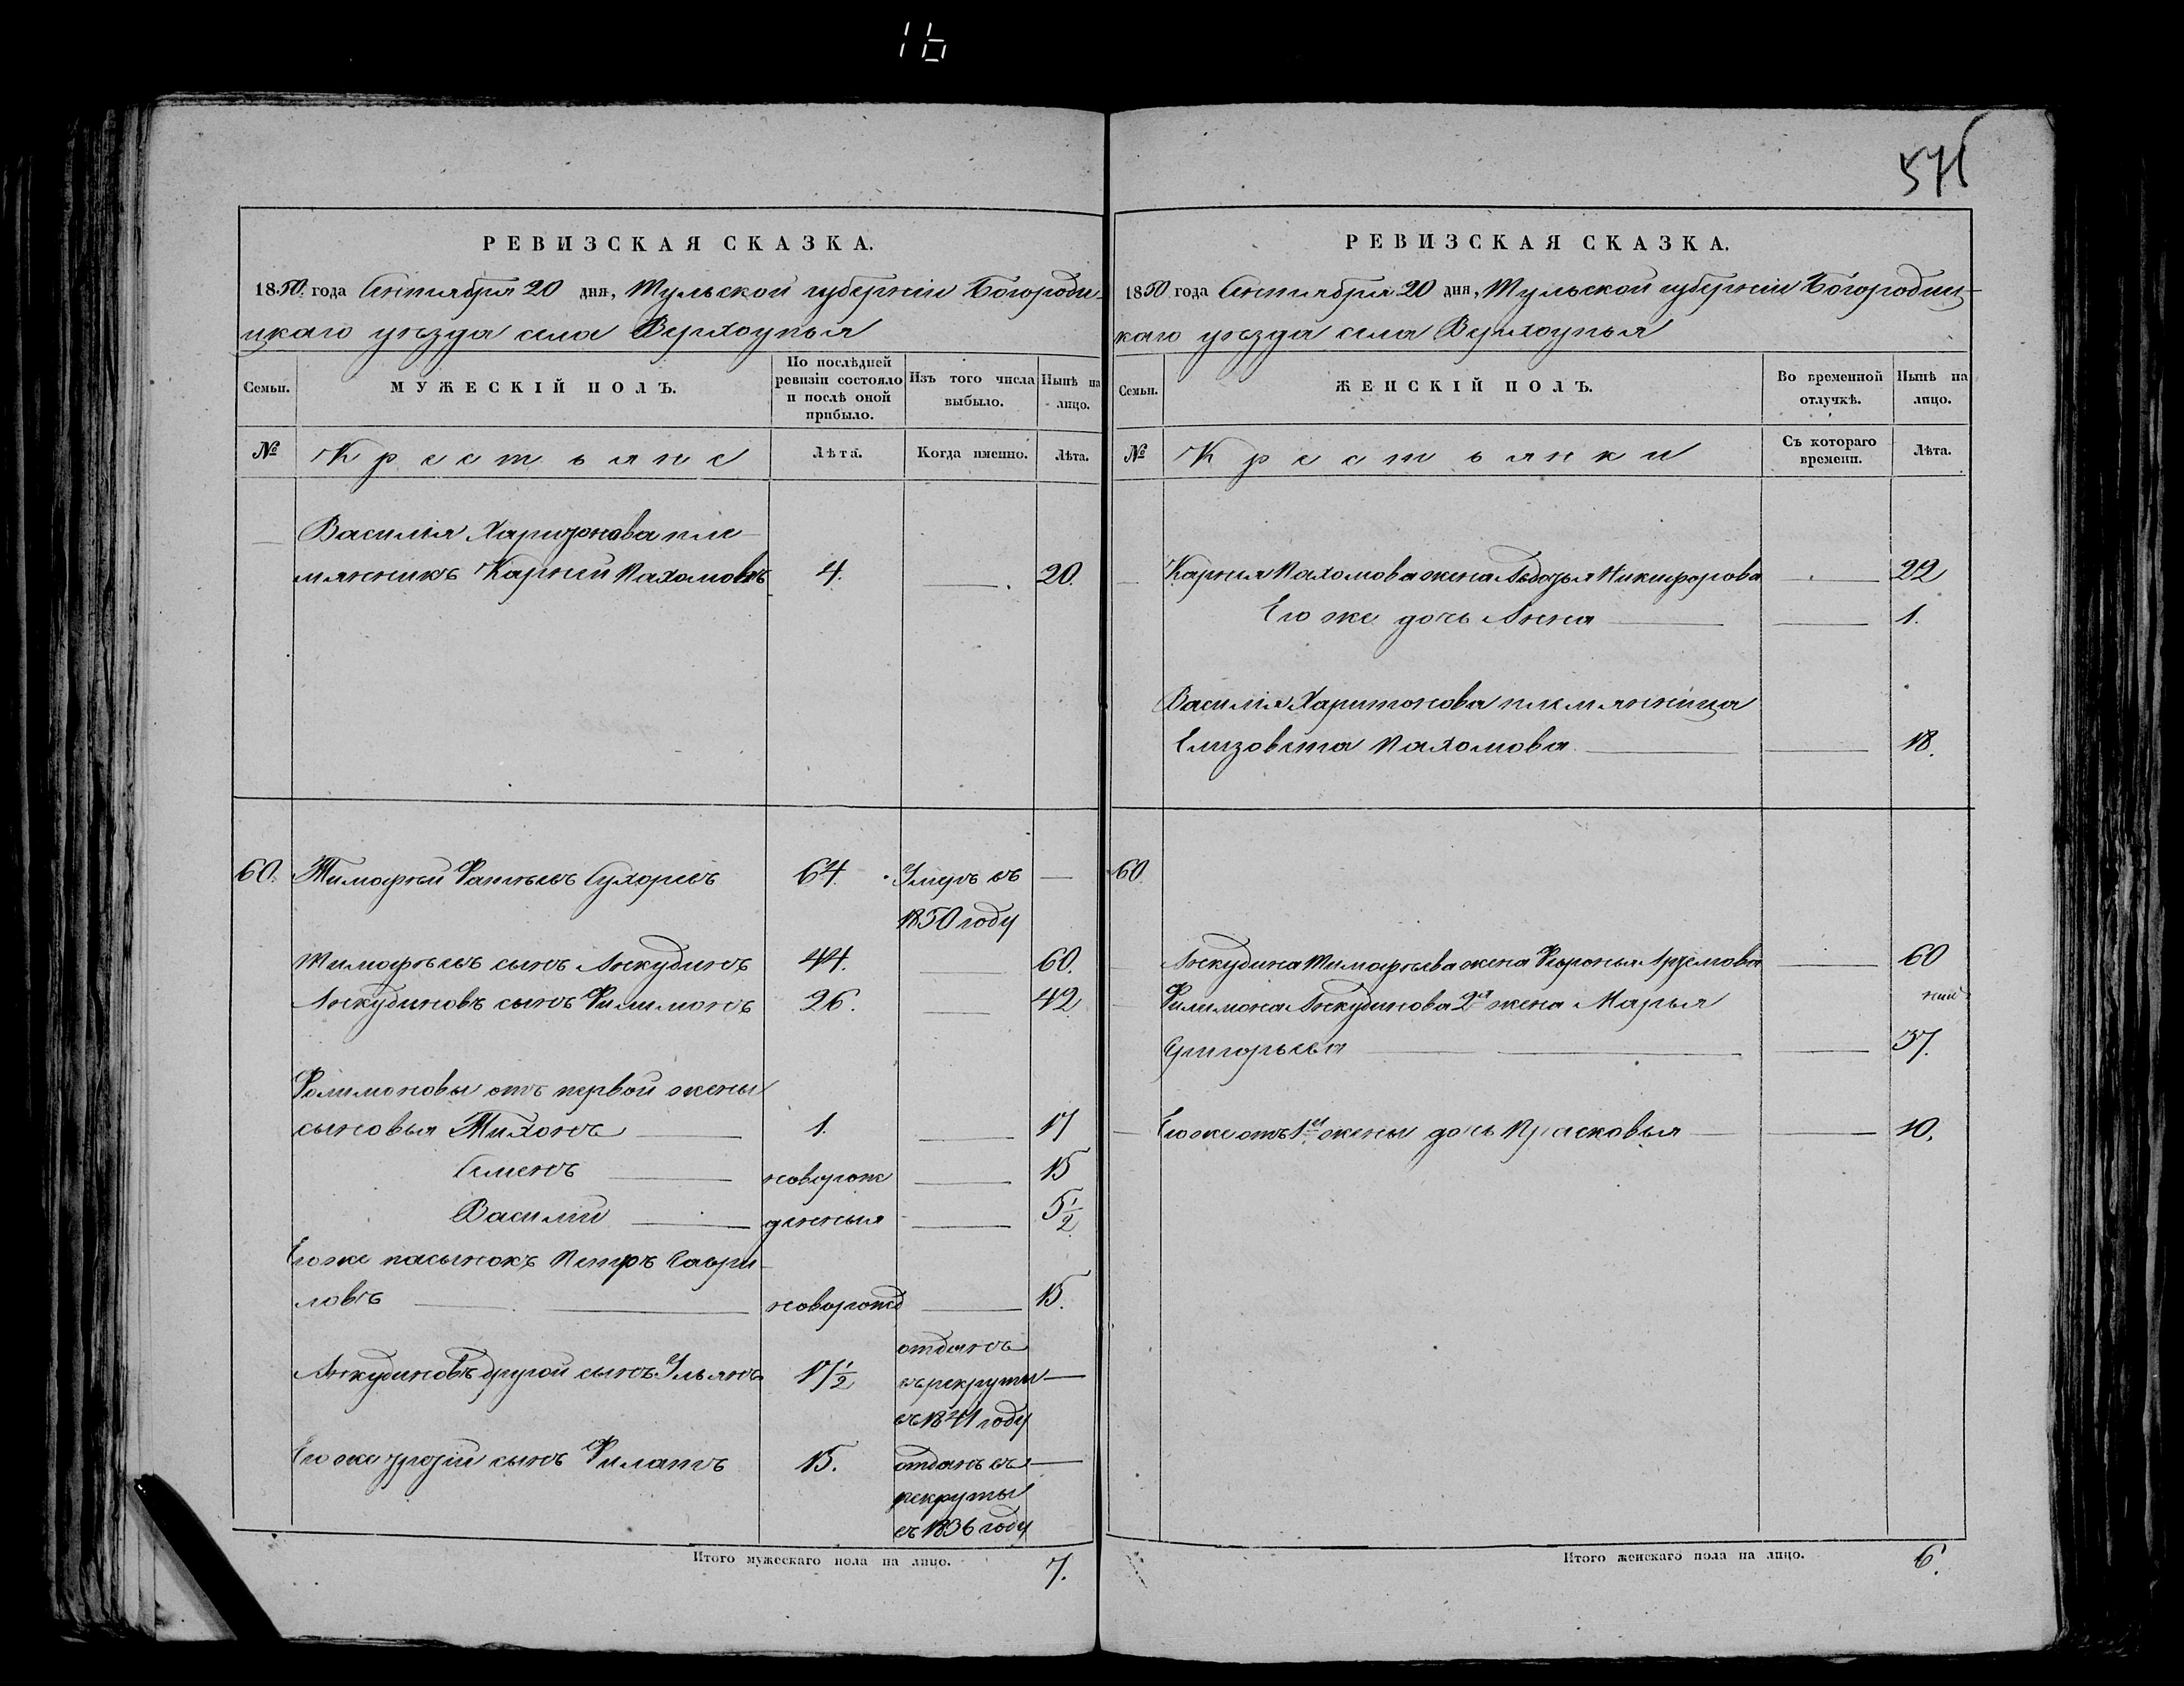 16
571
РЕВИЗСКАЯ СКАЗКА.
1850 года Сентября 20 дня, Тульской губерніи Богороди-
цкаго уѣзда села Верхоупья
Семьи.
МУЖЕСКІЙ ПОЛЪ.
По послѣдней ревизіи состояло и послѣ оной прибыло.
Изъ того числа выбыло.
Нынѣ на лицо.
№
Крестьяне
Лѣта.
Когда именно.
Лѣта.
Василія Харитонова пле-
мянникъ Карпѣй Пахомовъ 4. 20.
60. Тимофѣй Фатѣевъ Сухоревъ 64. Умеръ въ
1850 году
Тимофѣевъ сынъ Анкудинъ 44. 60.
Анкудиновъ сынъ Филимонъ 26. 42
Филимоновы отъ первой жены
сыновья Тихонъ 1. 17
Семенъ новорож 15
Василій денныя 5 1/2
Его же пасынокъ Петръ Гаври-
ловъ новорожд 15.
отданъ
Анкудиновъ другой сынъ Ульянъ 17 1/2 въ рекруты
въ 1841 году
Его же третій сынъ Филатъ 15. отданъ въ
рекруты
въ 1836 году
Итого мужескаго пола на лицо. 7.
РЕВИЗСКАЯ СКАЗКА.
1850 года Сентября 20 дня, Тульской губерніи Богородиц-
каго уѣзда села Верхоупья
Семьи.
ЖЕНСКІЙ ПОЛЪ.
Во временной отлучкѣ.
Нынѣ на лицо.
№
Крестьянки
Съ котораго времени.
Лѣта.
Карпѣя Пахомова жена Авдотья Никифорова 22
Его же дочь Анна 1.
Василія Харитонова племянница
Елизовета Пахомова 18.
60.
Анкудина Тимофѣева жена Февронья Артемова 60
Филимона Анкудинова 2я жена Марья
Григорьева 37.
Его же отъ 1й жены дочь Прасковья 10.
Итого женскаго пола на лицо. 6.